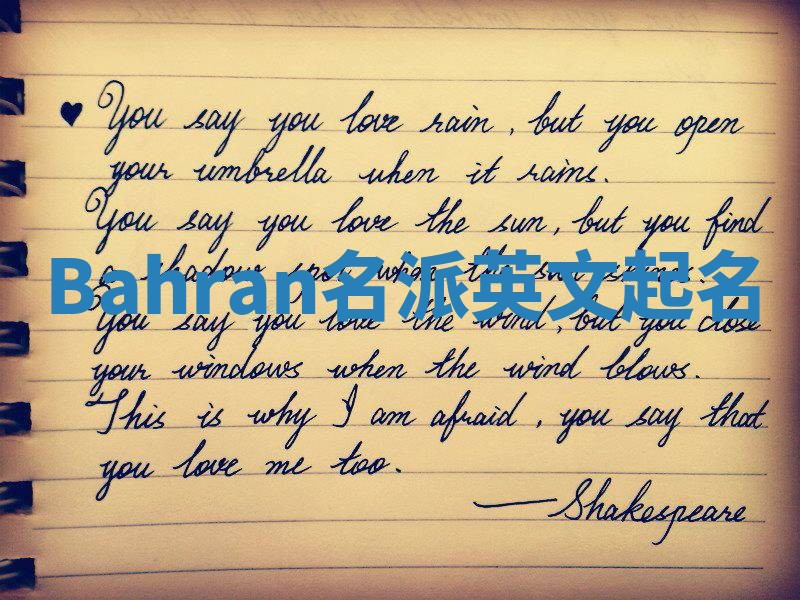 ♥ You say you love rain, but you open
your umbrella when it rains.
You say you love the sun, but you find
a shadow spot when the sun shines.
Bahran名派英文起名
You say you love the wind, but you close
your windows when the wind blows.
This is why I am afraid, you say that
you love me too.
— Shakespeare